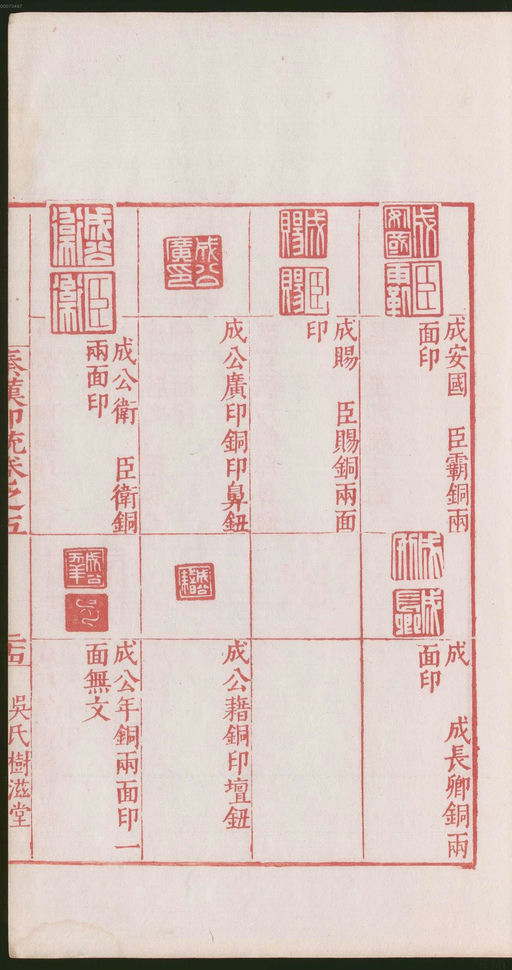 成安國　臣霸銅兩
面印
成賜　臣賜銅兩面
印
成公廣印銅印鼻鈕
成公衛　臣衛銅
兩面印
成　　成長卿銅兩
面印
成公藉銅印壇鈕
成公年銅兩面印一
面無文
秦漢印統卷之五
吳氏樹滋堂